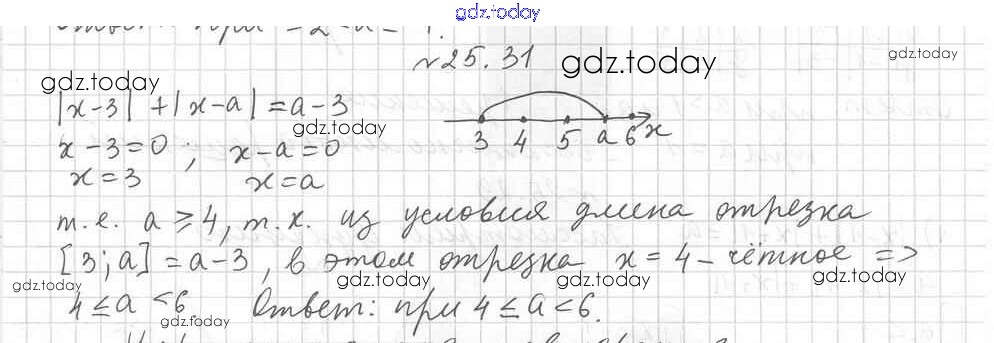 gdz.today
Ответ: при -2
№25.31
gdz.today
gdz.today
gdz.today
|x-3| + |x-a| = a-3
gdz.today
3 4 5 a 6 x
x-3=0 ; x-a=0
x=3 x=a
т.е. a ⩾ 4, т.к. из условия длина отрезка
[3;a] = a-3, в этом отрезка x=4 - чётное =>
gdz.today gdz.today gdz.today
4 ≤ a < 6. Ответ: при 4 ≤ a < 6.
gdz.today